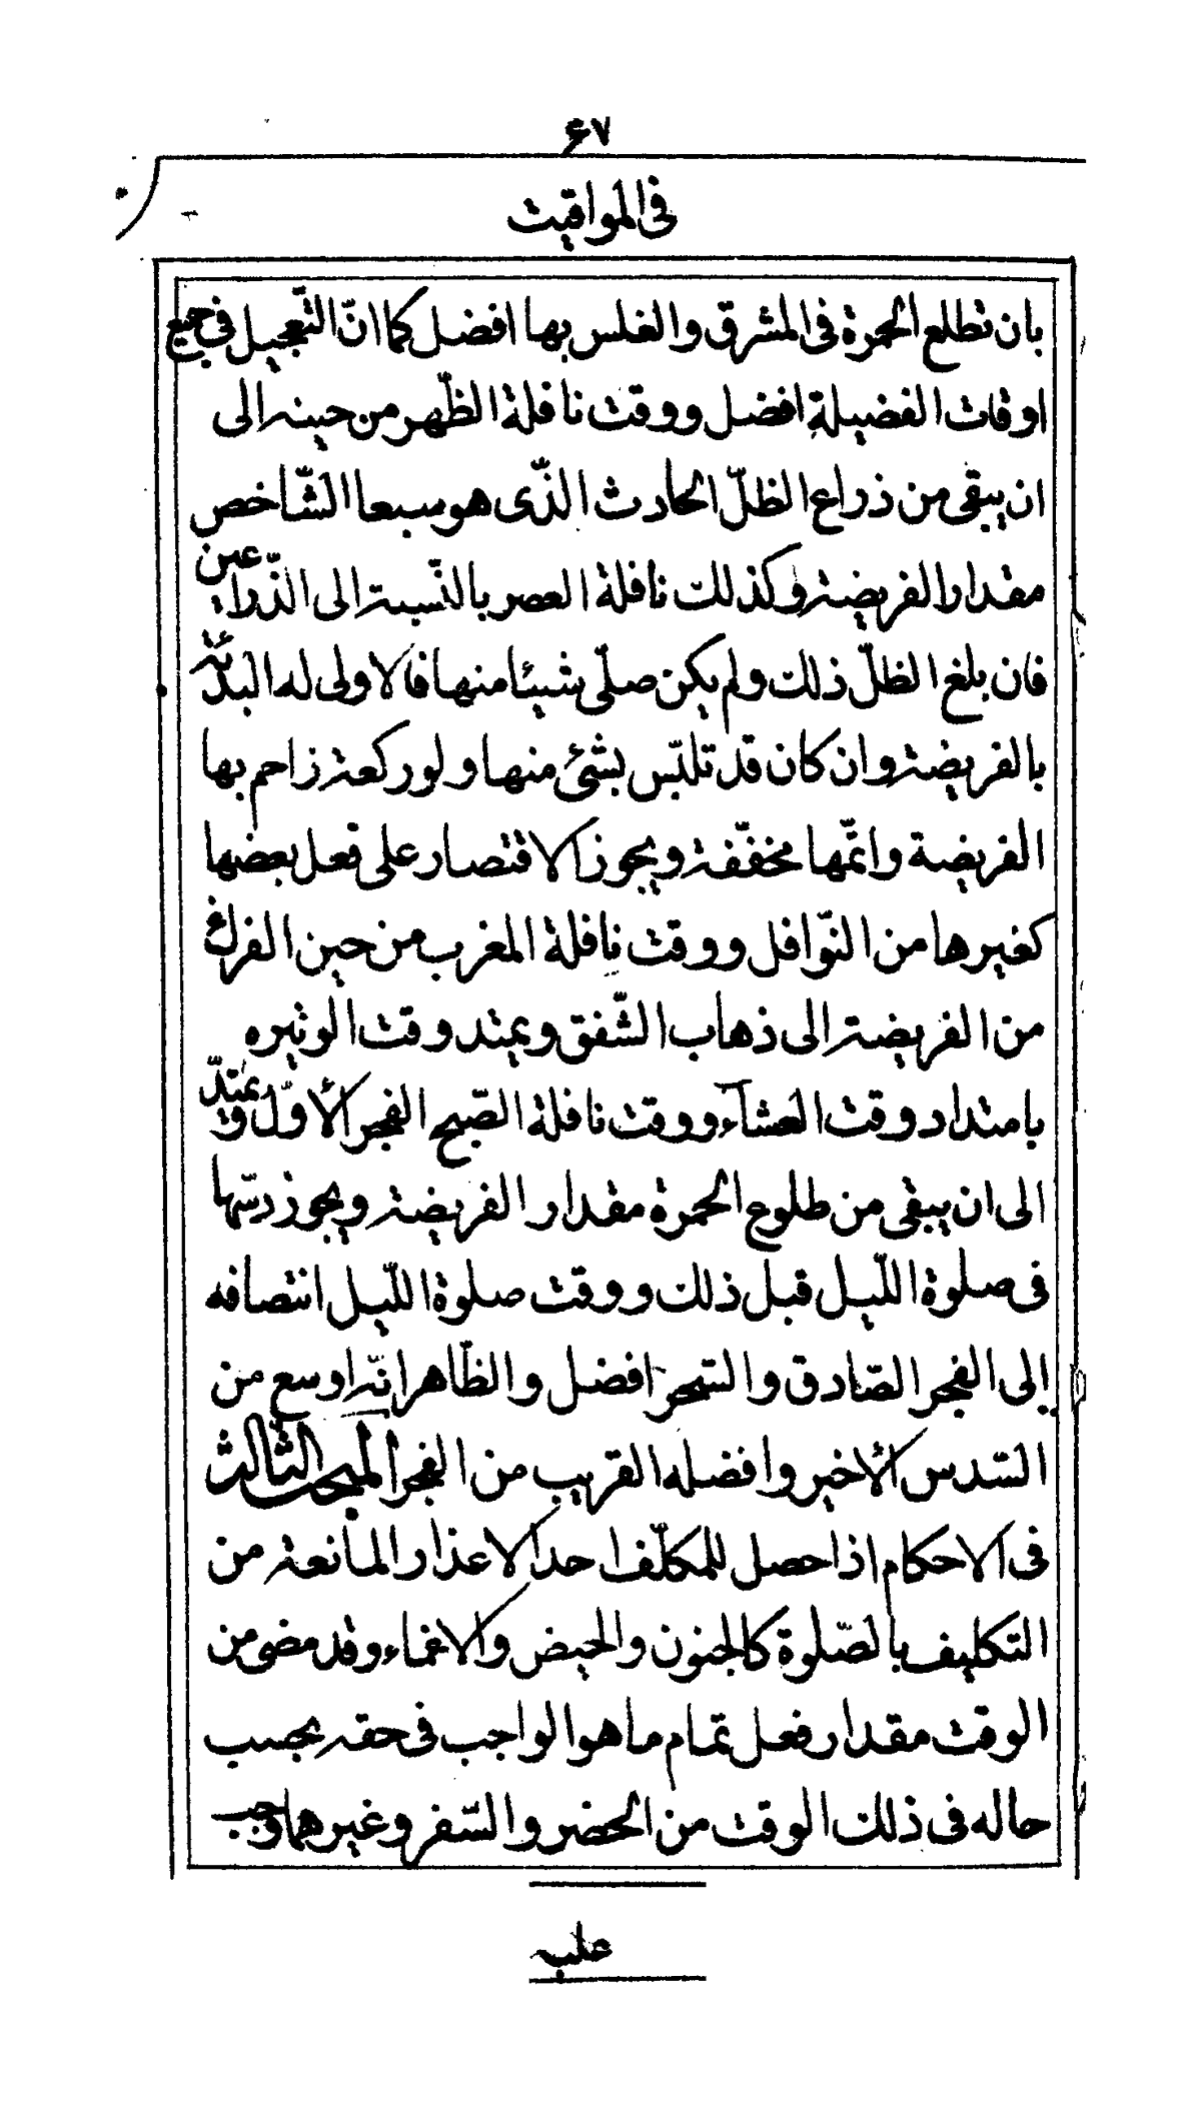 ۶۷
فى المواقيت
بان تطلع الحمرة فى المشرق والغلس بها افضل كما انّ التّعجيل فى جميع
اوقات الفضيلة افضل ووقت نافلة الظّهر من حينه الى
ان يبقى من ذراع الظلّ الحادث الذّى هو سبعا الشّاخص
مقدار الفريضة وكذلك نافلة العصر بالنّسبة الى الذّراعين
فان بلغ الظلّ ذلك ولم يكن صلّى شيئا منها فالاولى له البدئة
بالفريضة وان كان قد تلبّس بشئ منها ولو ركعة زاحم بها
الفريضة واتمّها مخفّفة ويجوز الاقتصار على فعل بعضها
كغيرها من النّوافل ووقت نافلة المغرب من حين الفراغ
من الفريضة الى ذهاب الشّفق ويمتد وقت الوتيره
بامتداد وقت العشآء ووقت نافلة الصّبح الفجر الأوّل ويمتدّ
الى ان يبقى من طلوع الحمرة مقدار الفريضة ويجوز دسّها
فى صلوة اللّيل قبل ذلك ووقت صلوة اللّيل انتصافه
إلى الفجر الصّادق والسّحر افضل والظّاهر انّه اوسع من
السّدس الأخير وافضله القريب من الفجر المبحث الثّالث
فى الاحكام اذا حصل للمكلّف احد الاعذار المانعة من
التكليف بالصّلوة كالجنون والحيض والاغماء وقد مضى من
الوقت مقدار فعل تمام ما هو الواجب فى حقه بحسب
حاله فى ذلك الوقت من الحضر والسّفر وغيرهما وجب
عليه